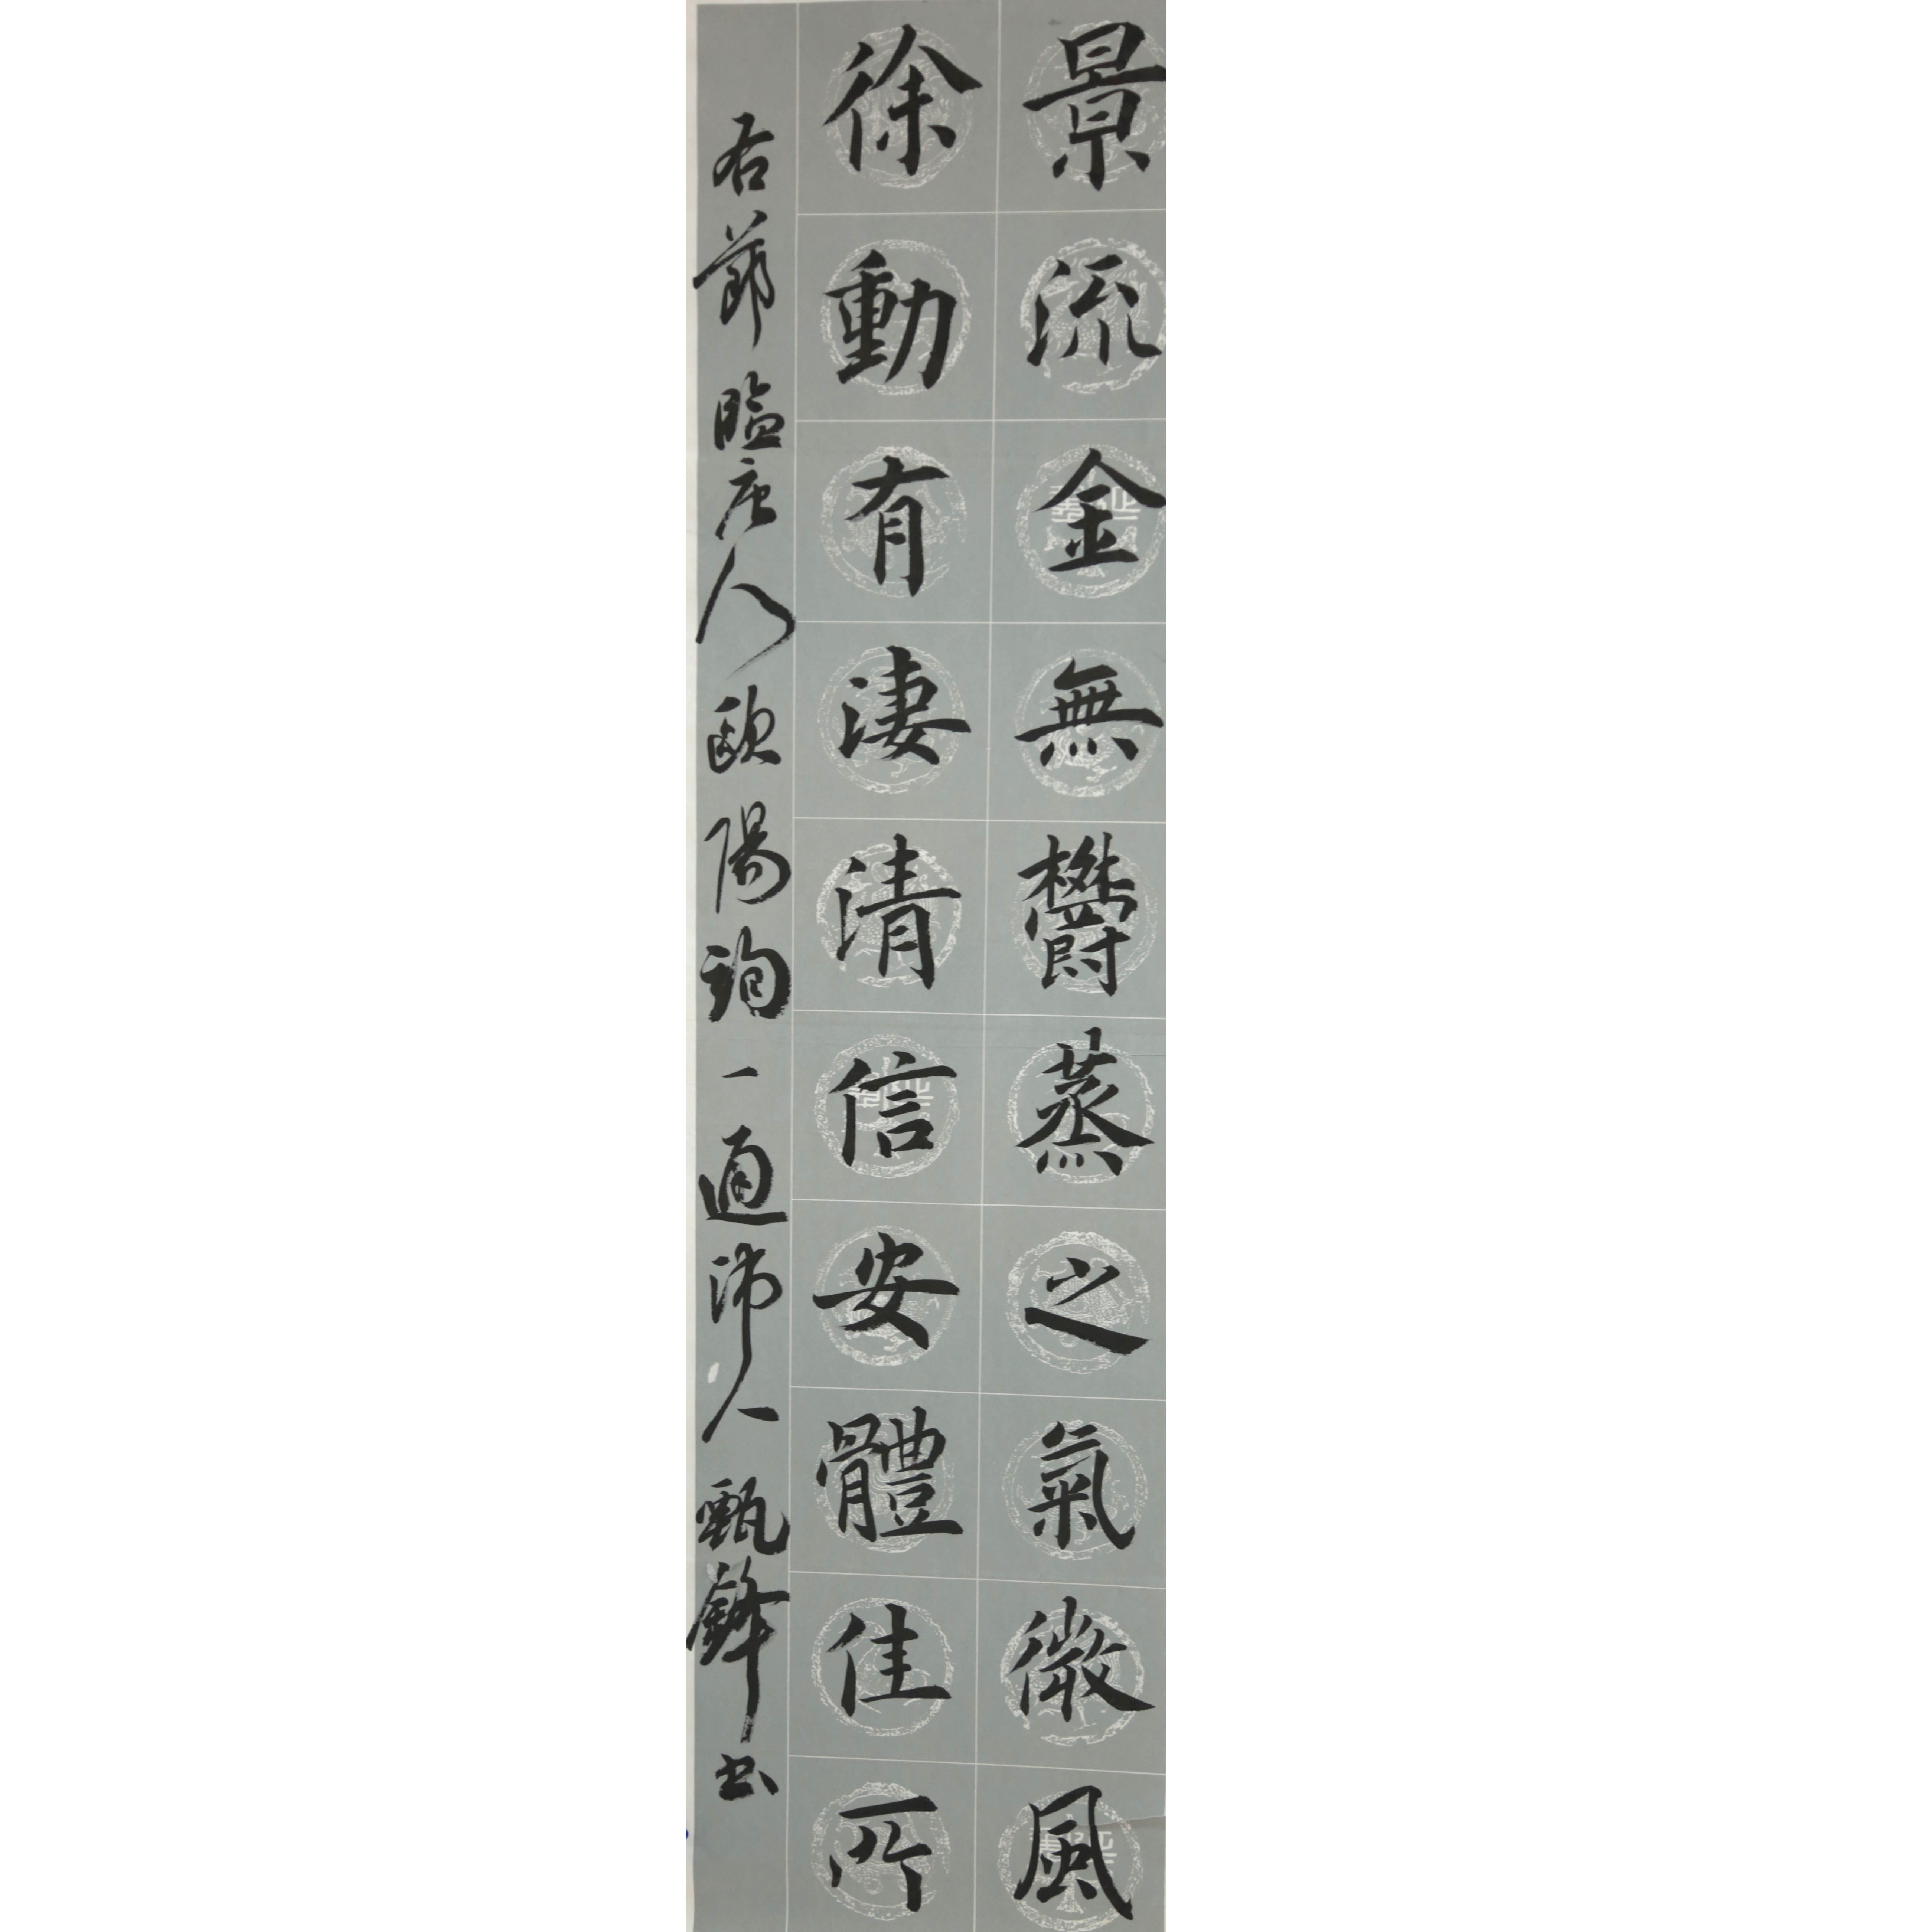 景流金無欝蒸之氣微風
徐動有淒清信安體佳所
右節臨唐人歐陽詢一通沛人甄鋒书